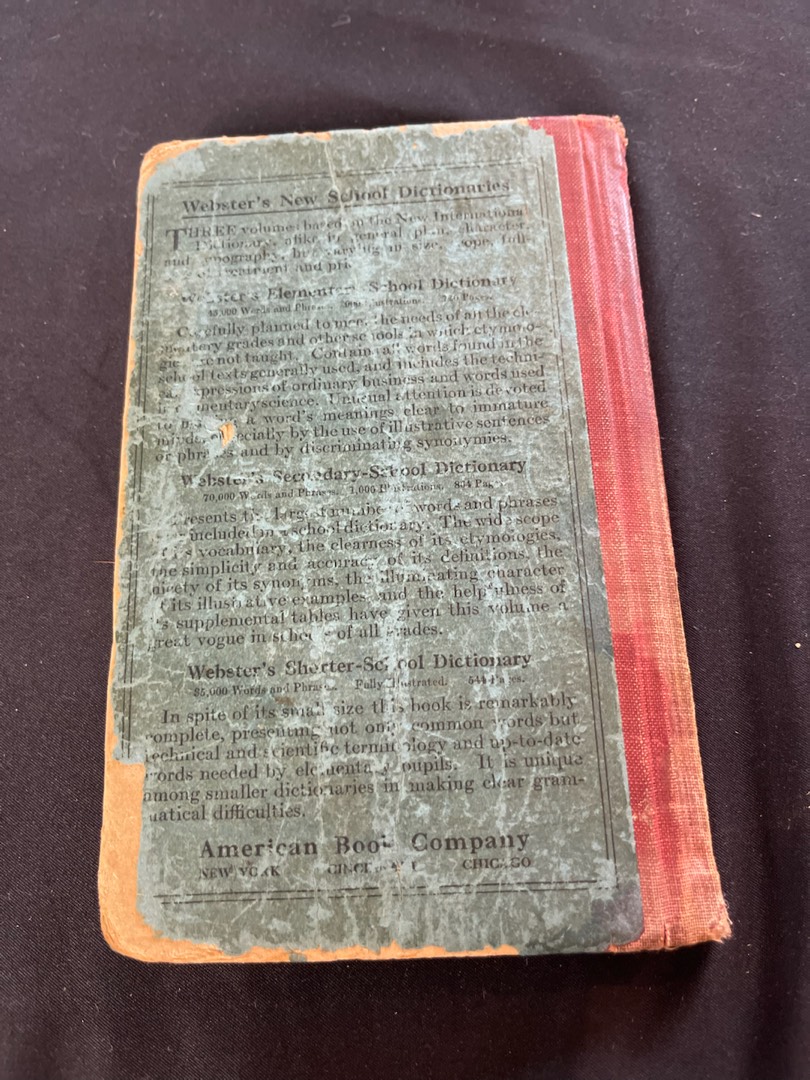 Webster's New School Dictionaries
THREE volumes based on the New International
Dictionary, alike in general plan, character,
and typography, but varying in size, scope, full-
treatment and
Webster's Elementary-School Dictionary
45,000 Words and Phrases. Illustrations. Pages.
Carefully planned to meet the needs of all the ele-
mentary grades and other schools in which etymolo-
gies are not taught. Contains all words found in the
school texts generally used, and includes the techni-
cal expressions of ordinary business and words used
in elementary science. Unusual attention is devoted
to a word's meanings clear to immature
minds, especially by the use of illustrative sentences
or phrases and by discriminating synonymies.
Webster's Secondary-School Dictionary
70,000 Words and Phrases. 1,000 Illustrations. 864 Pages.
Presents the largest number of words and phrases
included in a school dictionary. The wide scope
of its vocabulary, the clearness of its etymologies,
the simplicity and accuracy of its definitions, the
nicety of its synonyms, the illuminating character
of its illustrative examples, and the helpfulness of
its supplemental tables have given this volume a
great vogue in schools of all grades.
Webster's Shorter-School Dictionary
35,000 Words and Phrases. Fully Illustrated. 544 Pages.
In spite of its small size this book is remarkably
complete, presenting not only common words but
technical and scientific terminology and up-to-date
words needed by elementary pupils. It is unique
among smaller dictionaries in making clear gram-
matical difficulties.
American Book Company
NEW YORK CINCINNATI CHICAGO